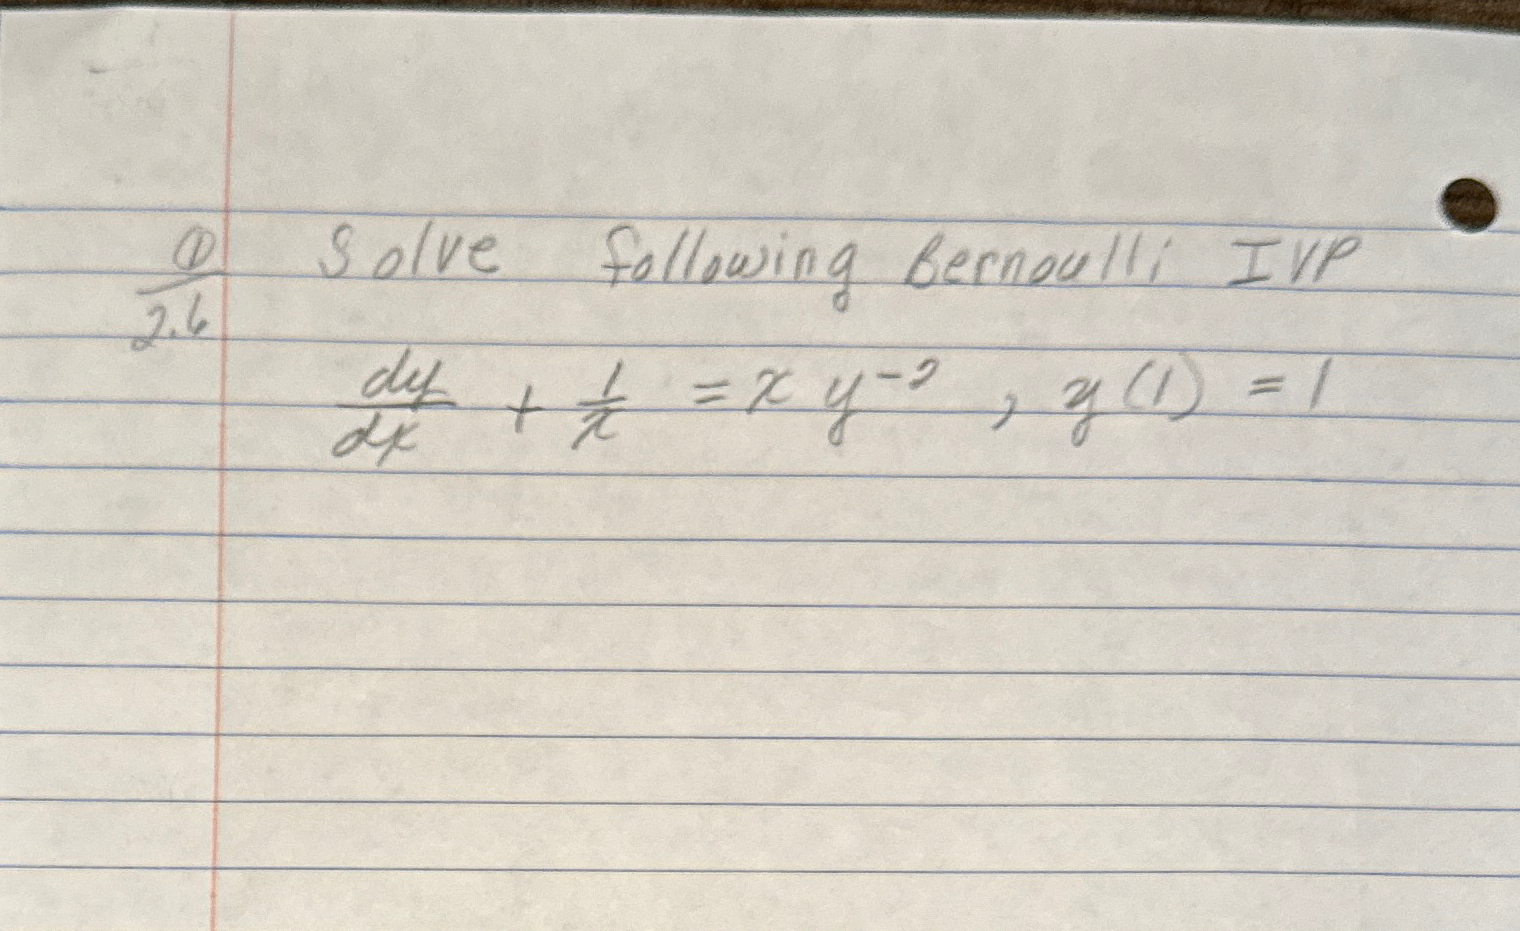 ① Solve following Bernoulli IVP
2.6
dy/dx + 1/x = x y⁻², y(1) = 1